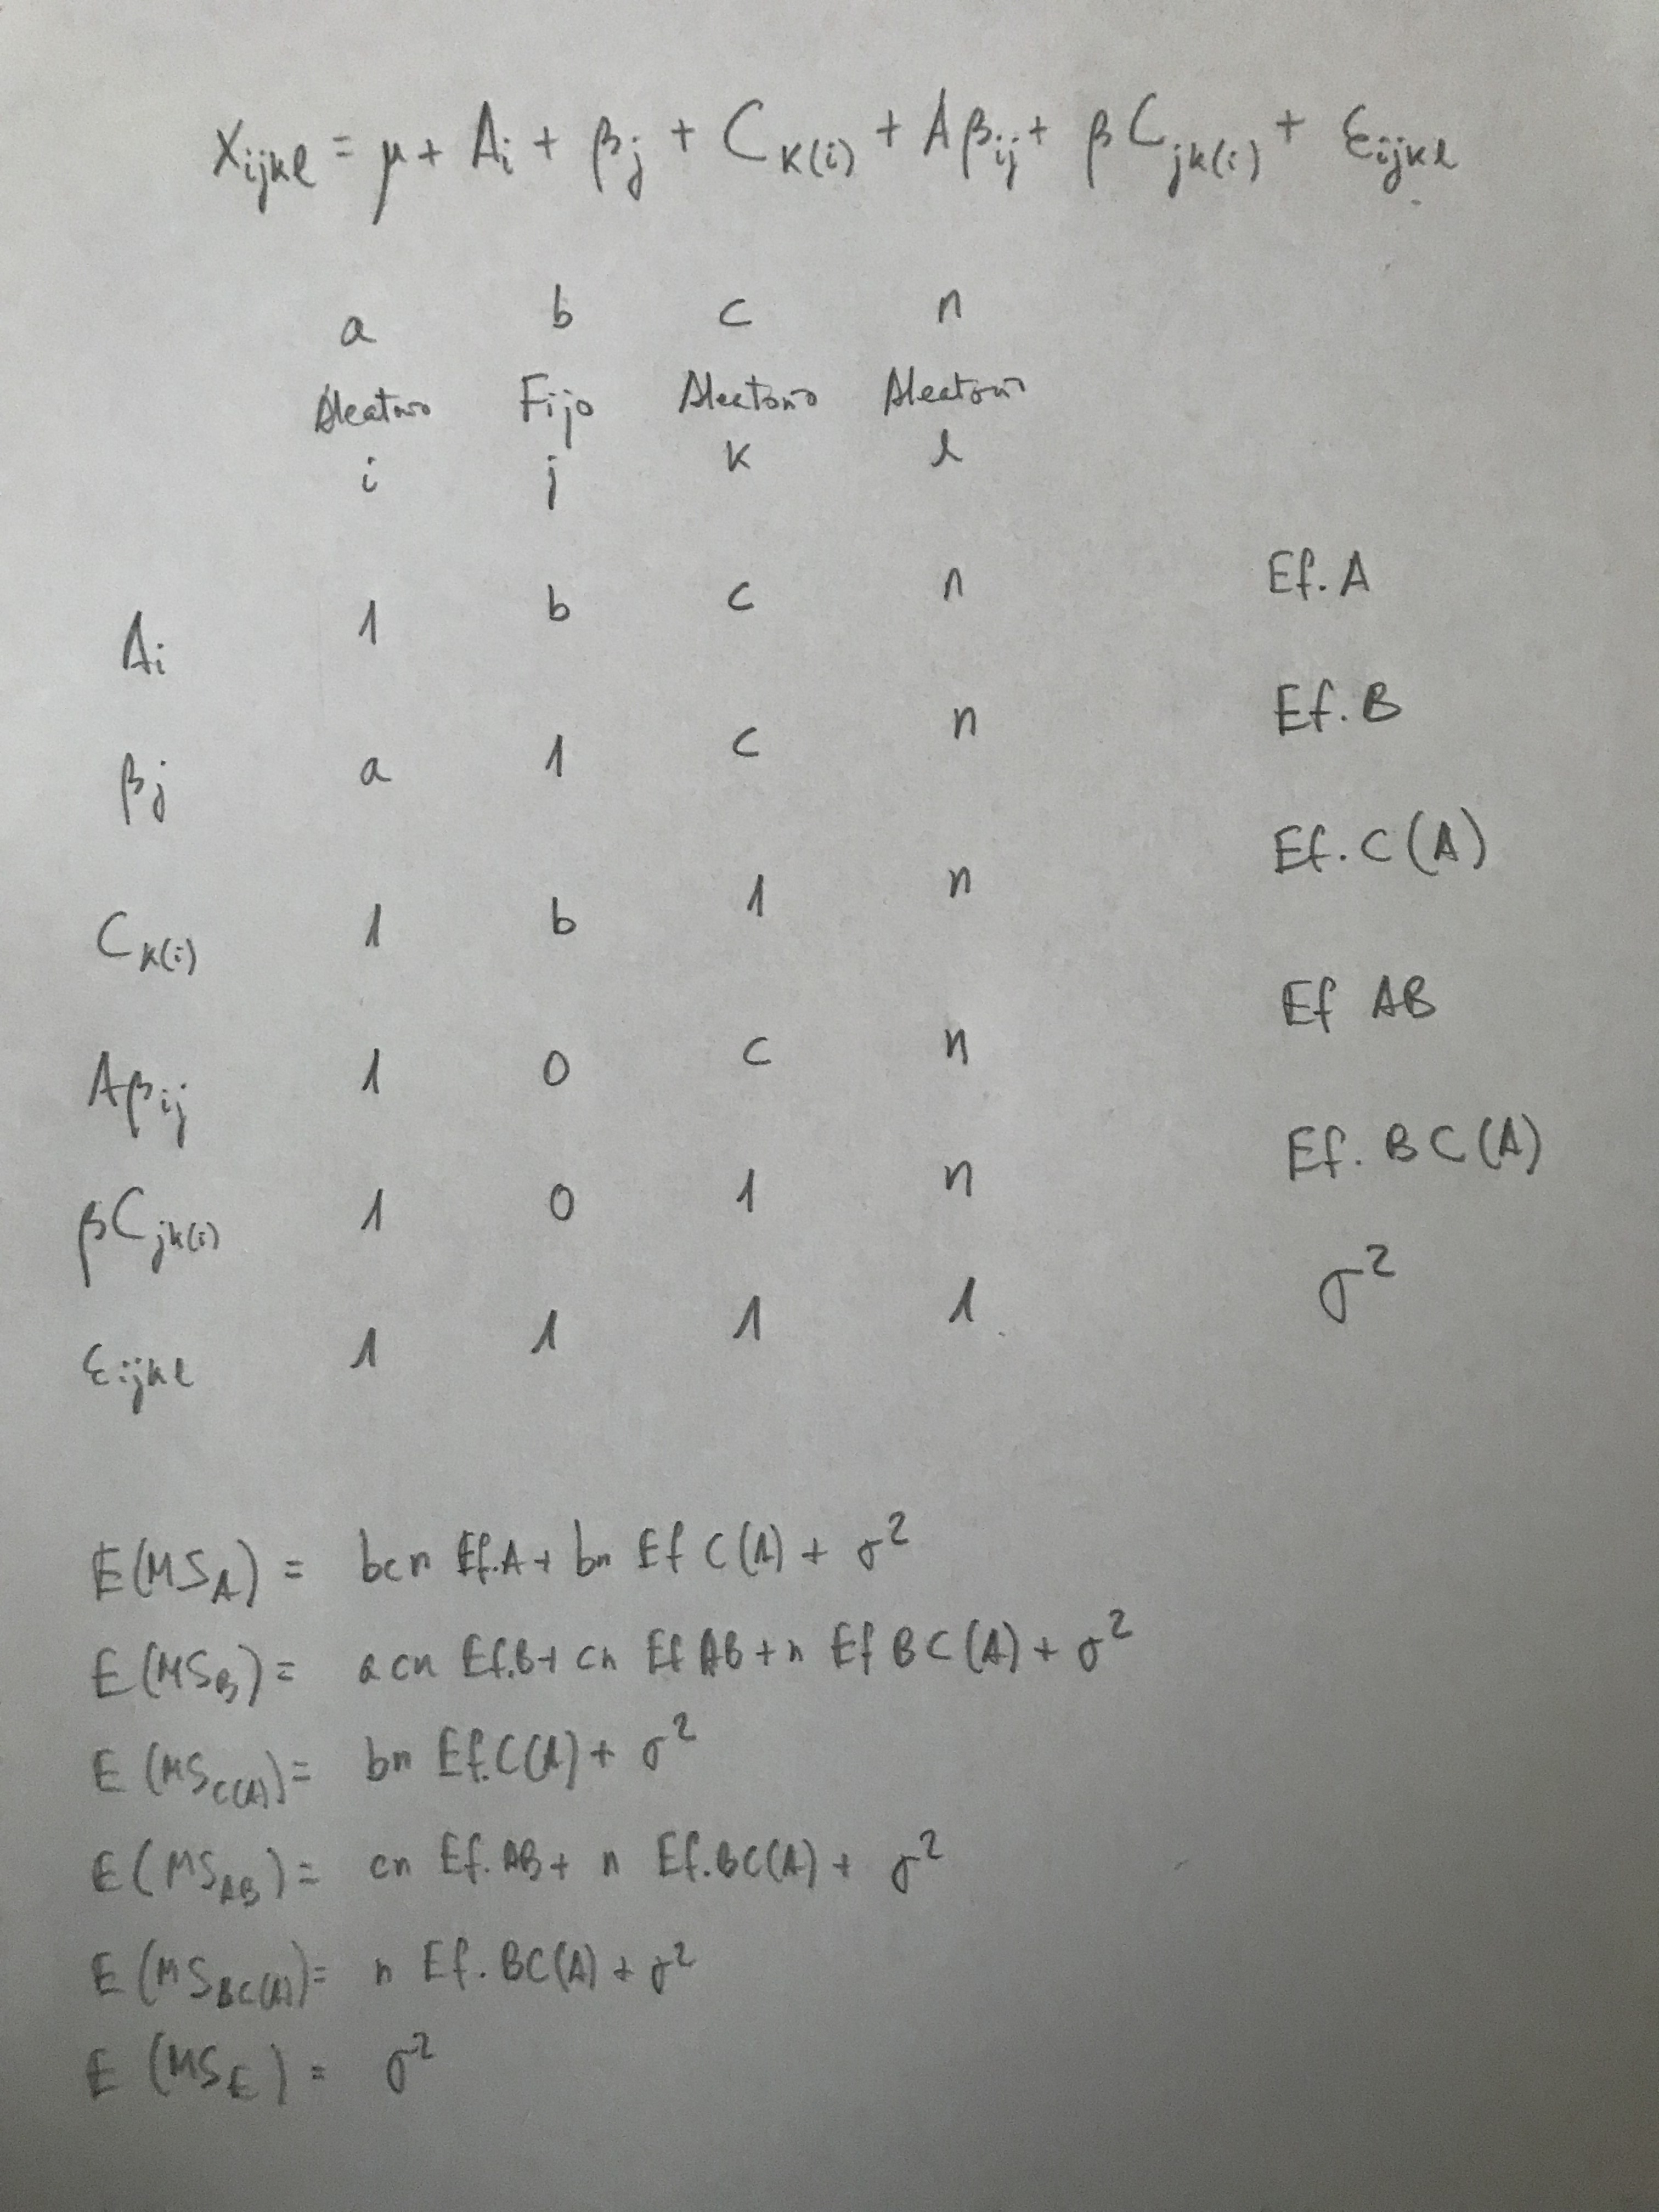 Xijkl = μ + Ai + βj + Ck(i) + Aβij + βCjk(i) + εijkl
a b c n
Aleatorio Fijo Aleatorio Aleatorio
i j k l
Ai 1 b c n Ef. A
βj a 1 c n Ef. B
Ck(i) 1 b 1 n Ef. C(A)
Aβij 1 0 c n Ef AB
βCjk(i) 1 0 1 n Ef. BC(A)
εijkl 1 1 1 1 σ²
E(MSA) = bcn Ef.A + bn Ef C(A) + σ²
E(MSB) = acn Ef.B + cn Ef AB + n Ef BC(A) + σ²
E(MSC(A)) = bn Ef.C(A) + σ²
E(MSAB) = cn Ef.AB + n Ef.BC(A) + σ²
E(MSBC(A)) = n Ef. BC(A) + σ²
E(MSE) = σ²